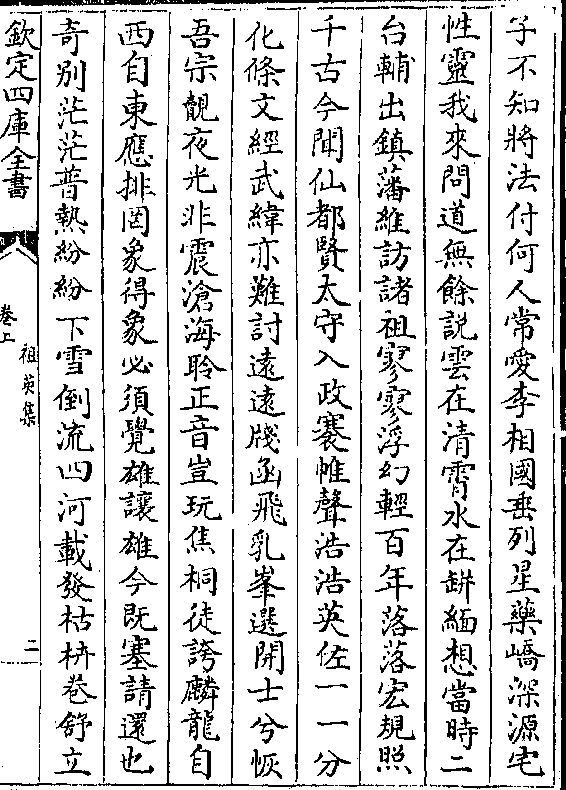 子不知將法付何人常愛李相國垂列星藥嶠深源宅
性靈我來問道無餘説雲在清霄水在缾緬想當時二
台輔出鎮藩維訪諸祖寥寥浮幻輕百年落落宏規照
千古今聞仙都賢太守入政褰帷聲浩浩英佐一一分
化條文經武緯亦難討遠遠牋函飛乳峯選開士兮恢
吾宗覩夜光非震滄海聆正音豈玩焦桐徒誇麟龍自
西自東應排罔象得象必須覺雄讓雄今既塞請還也
奇别茫茫普熱紛紛下雪倒流四河載發枯枿卷舒立
欽定四庫全書
祖英集
卷上
二